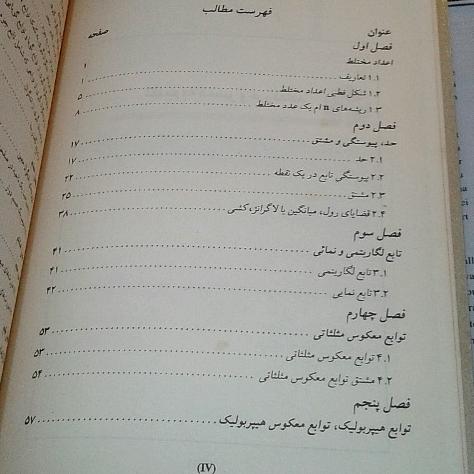 فهرست مطالب
عنوان صفحه
فصل اول
اعداد مختلط ۱
۱.۱ تعاریف ۱
۱.۲ شکل قطبی اعداد مختلط ۵
۱.۳ ریشه‌های n ام یک عدد مختلط ۸
فصل دوم
حد، پیوستگی و مشتق ۱۷
۲.۱ حد ۱۷
۲.۲ پیوستگی تابع در یک نقطه ۲۲
۲.۳ مشتق ۲۵
۲.۴ قضایای رول، میانگین یا لاگرانژ، کشی ۳۸
فصل سوم
تابع لگاریتمی و نمائی ۴۱
۳.۱ تابع لگاریتمی ۴۱
۳.۲ تابع نمایی ۴۲
فصل چهارم
توابع معکوس مثلثاتی ۵۳
۴.۱ توابع معکوس مثلثاتی ۵۳
۴.۲ مشتق توابع معکوس مثلثاتی ۵۴
فصل پنجم
توابع هیپربولیک، توابع معکوس هیپربولیک ۵۷
(IV)